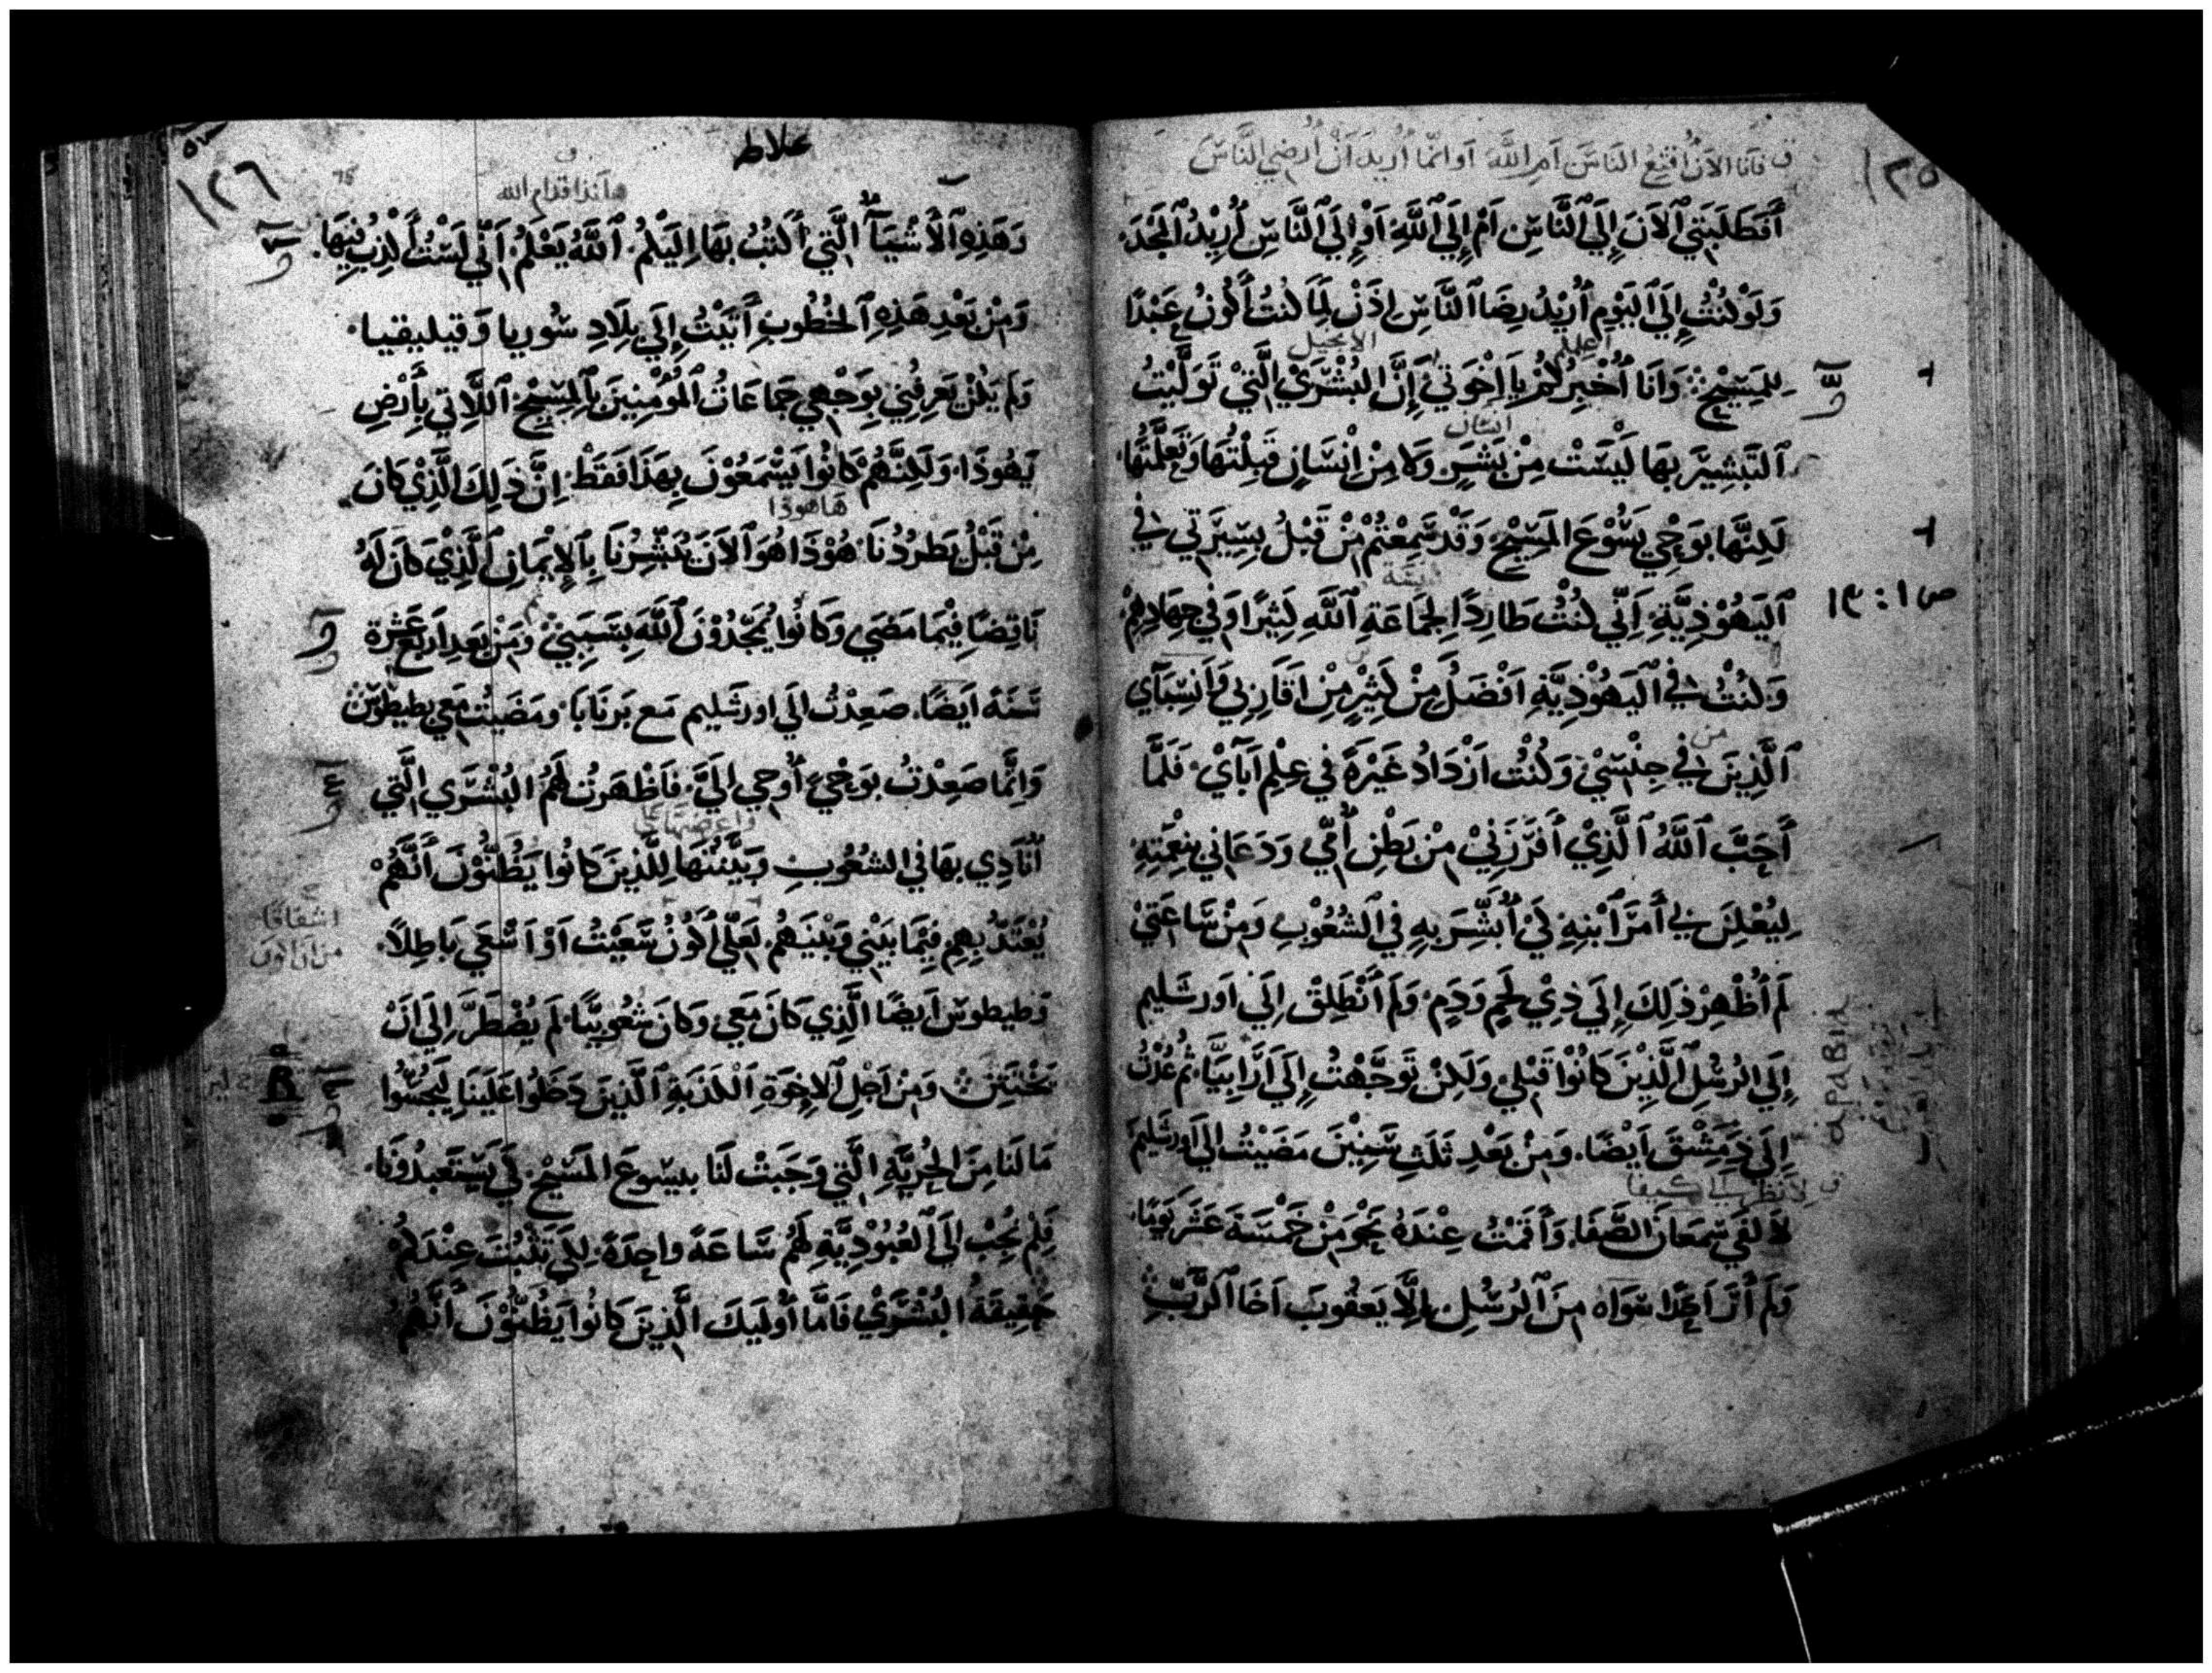 ١٢٥
ف فانا الان اقنع الناس ام الله او انما اريد ان ارضي الناس
أَفَطَلَبَتِي ٱلاَنَ إِلَي ٱلنَّاسِ اَمْ إِلَي ٱللَّهِ اَوْ إِلَي ٱلنَّاسِ أُرِيْدُ ٱلْمَجْدَ.
وَلَوْ كُنْتُ إِلَي ٱليَوْمِ أُرِيْدُ رِضَا ٱلنَّاسِ اِذَنْ لِمَا كُنتُ أَكُونُ عَبْدًا
اعلمكم الانجيل
لِلمَسِيْحِ وَاَنَا اُخْبِرُكُمْ يَا اِخْوَتِي إِنَّ البُشْرَيْ الَّتِيْ تَوَلَّيْتُ
انسان
ٱلتَّبْشِيْرَ بِهَا لَيْسَتْ مِنْ بَشَرٍ وَلَا مِنْ اِنْسَانٍ قَبِلْتُهَا وَتَعَلَّمْتُهَا.
لَكِنَّهَا بِوَحْيِ يَسُوْعَ المَسِيْحِ وَقَدْ سَمِعْتُمْ مِنْ قَبْلُ بِسِيْرَتِي فِي
بيعة
ص ١ : ١٣
ٱليَهُوْذِيَّةِ اَنِّي كُنْتُ طَارِدًا لِجَمَاعَةِ ٱللَّهِ كَثِيْرًا وَفِي جِهَادِهِمْ
وَكُنْتُ فِي ٱليَهُوْذِيَّةِ اَفْضَلَ مِنْ كَثِيْرٍ مِنْ اَقَارِبِي وَاَنْسِبَآيِ
من
ٱلَّذِينَ فِي جِنْسِيْ وَكُنْتُ اَزْدَادُ غَيْرَةً فِي عِلْمِ اَبَآيْ. فَلَمَّا
أَحَبَّ ٱللَّهُ ٱلَّذِيْ أَفْرَزَنِيْ مِنْ بَطْنِ أُمِّي وَدَعَانِي بِنِعْمَتِهِ
لِيُعْلِنَ لِي أَمْرَ ٱبْنِهِ لِكَيْ أُبَشِّرَ بِهِ فِي ٱلشُعُوْبِ وَمِنْ سَاعَتِيْ
لَمْ أُظْهِرْ ذَلِكَ إِلَي ذِيْ لَحْمٍ وَدَمٍ. وَلَمْ أَنْطَلِقْ اِلَي اَورشَليم
إِلَي الرُسُلِ ٱلَّذِيْنَ كَانُوْا قَبْلِي وَلَكِنْ تَوَجَّهْتُ إِلَي أَرَابِيَّا ثُمَّ عُدْتُ
اِلَي دِمَشْقَ اَيْضًا. وَمِنْ بَعْدِ ثَلَثِ سِنِيْنَ مَضَيْتُ اِلَي اَورشَليمَ
ف لانظر الي كيفا
لاَلقَي سِمعَانَ الصَّفَا. وَأَقَمْتُ عِنْدَهُ نَحْوَ مِنْ خَمْسَةَ عَشَرَ يَوْمًا.
وَلَمْ أَرَ اَحَدًا سَوَاه مِنَ ٱلرُسُلِ. اِلَّا يَعقُوبَ اَخَا ٱلرَّبِّ
١٢٦
غلاطه
هانذا قدام الله
وَهَذِهِ ٱلأَشْيَآ الَّتِي أَكتُبُ بِهَا اِلَيْكُمْ. ٱللَّهُ يَعْلَمُ اَنِّي لَسْتُ أَكذِبُ فِيْهَا.
وَمِنْ بَعْدِ هَذِهِ ٱلخُطُوبِ أَتَيْتُ إِلَي بِلَادِ سُوريا وَقيليقيا.
وَلَمْ يَكُنْ يَعرِفُنِي بِوَجْهِي جَمَاعَاتُ ٱلمُؤمِنِينَ بِالمَسِيْحِ ٱللَّاتِي بِأَرْضِ
يَهُوذَا. وَلَكِنَّهُمْ كَانُوا يَسْمَعُوْنَ بِهَذَا فَقَطْ. اِنَّ ذَلِكَ الَّذِيْ كَانَ
هاهوذا
مِنْ قَبْلُ يَطْرُدُنَا هُوْذَا هُوَ ٱلاَنَ يُبَشِّرُنَا بِٱلاِيْمَانِ ٱلَّذِيْ كَانَ لَهُ
نَاقِضًا فِيْمَا مَضَي وَكَانُوا يُمَجِّدُوْنَ ٱللَّهَ بِسَبَبِيْ وَمِنْ بَعدِ اَربَع عَشرَة
سَنَةً اَيضًا. صَعِدْتُ اِلَي اورشَليم مَع بَرنَابَا. ومَضَيتُ مَعِي بِطِيطوسَ
وَاِنَّمَا صَعِدْتُ بِوَحْيٍ أُوحِي اِلَيَّ. فَاَظْهَرتُ لَهُمُ البُشْرَي الَّتِي
واعرضتها علي
اُنَادِي بِهَا فِي الشُعُوبِ وَبَيَّنْتُهَا لِلَّذِينَ كَانُوا يَظُنُّوْنَ أَنَّهُمْ
اشفاقا
من ان اكون
يُعْتَدُّ بِهِم فِيْمَا بَيْنِي وَبَيْنَهُمْ. لَعَلِّي أَكُوْنُ سَعَيْتُ اَوْ اَسْعَي بَاطِلاً.
وَطيطوس اَيضًا الَّذِي كَانَ مَعِي وَكَانَ شُعُوبِيًّا. لَمْ يُضْطَرَّ اِلَي اَنْ
يَخْتَتِنَ وَمِنْ اَجْلِ ٱلاِخوَةِ ٱلكَذَبَةِ ٱلَّذِينَ دَخَلُوا عَلَينَا لِيَجُسُّوا
مَا لَنَا مِنَ الحُرِيَّةِ الَّتِي وَجَبَتْ لَنَا بيسُوعَ المَسِيْحِ. كَيْ يَستَعبِدُونَا.
فَلَمْ نُجِبْ اِلَي ٱلعُبُوْدِيَّةِ لَهُمْ سَاعَةً واحِدَةً. لِكَيْ تَثْبُتَ عِنْدَكُمْ
حَقِيقَةُ البُشْرَيْ فَاَمَّا أُولَيِكَ الَّذِينَ كَانُوا يَظُنُّوْنَ أَنَّهُمْ